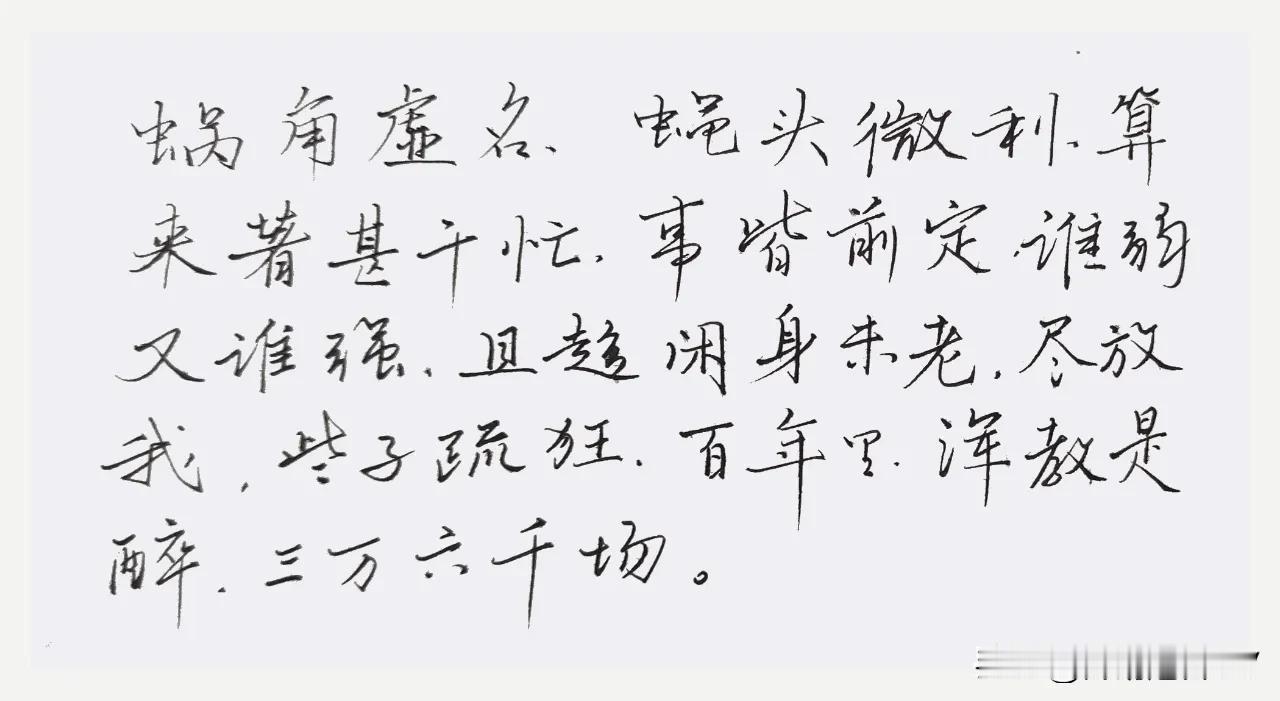 蜗角虚名、蝇头微利、算
来著甚干忙、事皆前定、谁弱
又谁强、且趁闲身未老、尽放
我，些子疏狂、百年里、浑教是
醉、三万六千场。